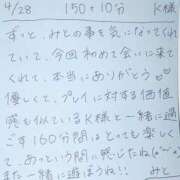 4/28 150+10分 K様
ずっと、みとの事を気になってくれ
ていて、今回初めて会いに来て
くれて、本当にありがとう♡
優しくて、プレイに対する価値
感も似ているK様と一緒に過
ごす160分間はとっても楽しく
て、あっという間に感じたね(*˘︶˘*)
また一緒に遊ぼうね!! みと